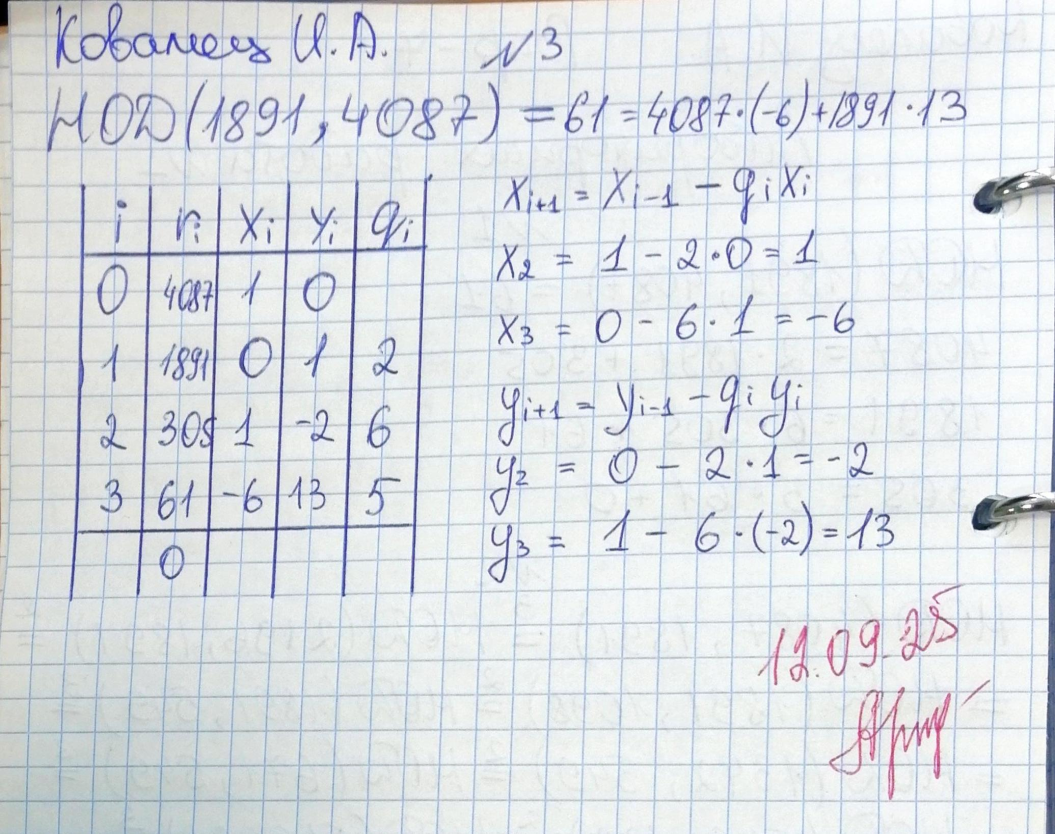 Ковалец И.А. №3
НОД(1891, 4087) = 61 = 4087·(-6)+1891·13
i rᵢ xᵢ yᵢ qᵢ
0 4087 1 0
1 1891 0 1 2
2 305 1 -2 6
3 61 -6 13 5
0
xᵢ₊₁ = xᵢ₋₁ - qᵢxᵢ
x₂ = 1 - 2·0 = 1
x₃ = 0 - 6·1 = -6
yᵢ₊₁ = yᵢ₋₁ - qᵢyᵢ
y₂ = 0 - 2·1 = -2
y₃ = 1 - 6·(-2) = 13
12.09.25